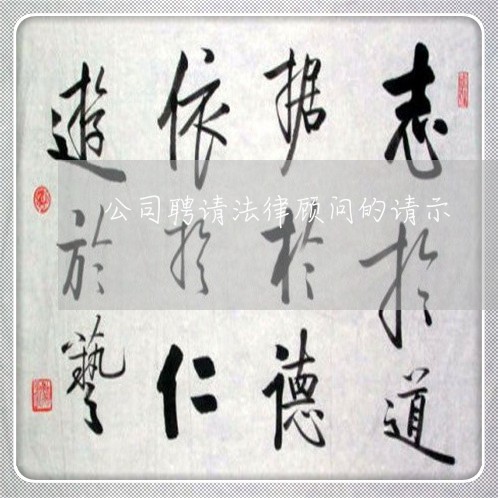 志於道
据於德
依於仁
遊於藝
公司聘请法律顾问的请示